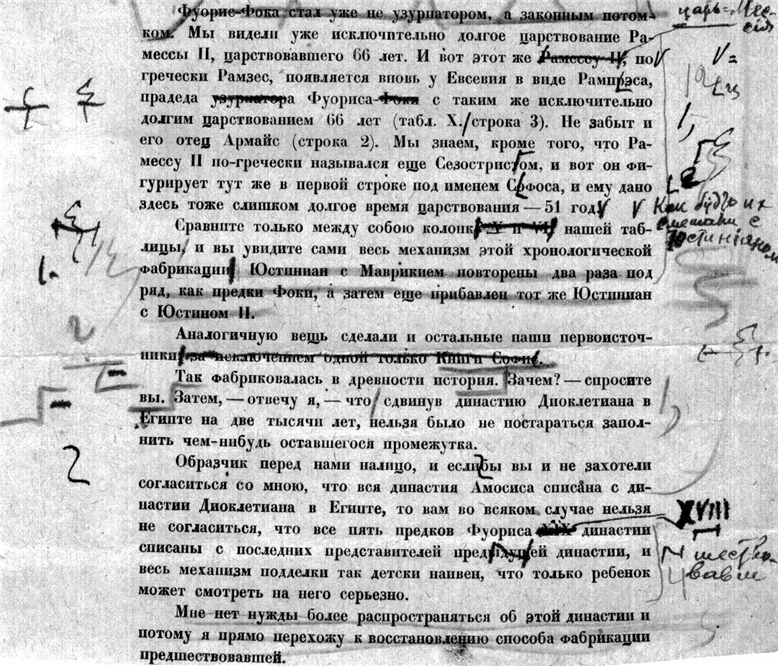 Фуорис-Фока стал уже не узурпатором, а законным потом-
ком. Мы видели уже исключительно долгое царствование Ра-
мессы II, царствовавшего 66 лет. И вот этот же Рамессу II, по
гречески Рамзес, появляется вновь у Евсевия в виде Рампрэса,
прадеда узурпатора Фуориса-Фоки с таким же исключительно
долгим царствованием 66 лет (табл. X. строка 3). Не забыт и
его отец Армайс (строка 2). Мы знаем, кроме того, что Ра-
мессу II по-гречески назывался еще Сезостристом, и вот он фи-
гурирует тут же в первой строке под именем Софоса, и ему дано
здесь тоже слишком долгое время царствования — 51 год
Как будто их
смешали с
Юстинианом
Сравните только между собою колонки нашей таб-
лицы, и вы увидите сами весь механизм этой хронологической
фабрикации Юстиниан с Маврикием повторены два раза под
ряд, как предки Фоки, а затем еще прибавлен тот же Юстиниан
с Юстином II.
Аналогичную вещь сделали и остальные наши первоисточ-
ники за исключением одной только Книги Софи.
Так фабриковалась в древности история. Зачем? — спросите
вы. Затем, — отвечу я, — что сдвинув династию Диоклетиана в
Египте на две тысячи лет, нельзя было не постараться запол-
нить чем-нибудь оставшегося промежутка.
Образчик перед нами налицо, и еслибы вы и не захотели
согласиться со мною, что вся династия Амосиса списана с ди-
настии Диоклетиана в Египте, то вам во всяком случае нельзя
не согласиться, что все пять предков Фуориса XIX династии
XVIII
списаны с последних представителей предыдущей династии, и
шество
вавши
весь механизм подделки так детски наивен, что только ребенок
может смотреть на него серьезно.
Мне нет нужды более распространяться об этой династии и
потому я прямо перехожу к восстановлению способа фабрикации
предшествовавшей.